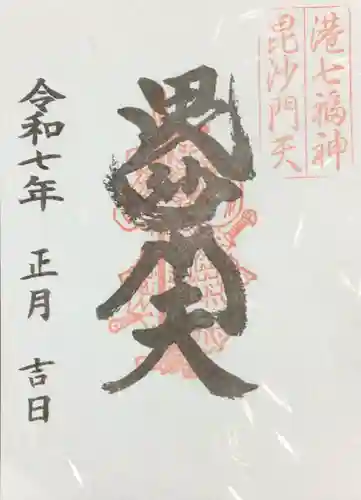 港七福神
毘沙門天
毘沙門天
令和七年 正月 吉日